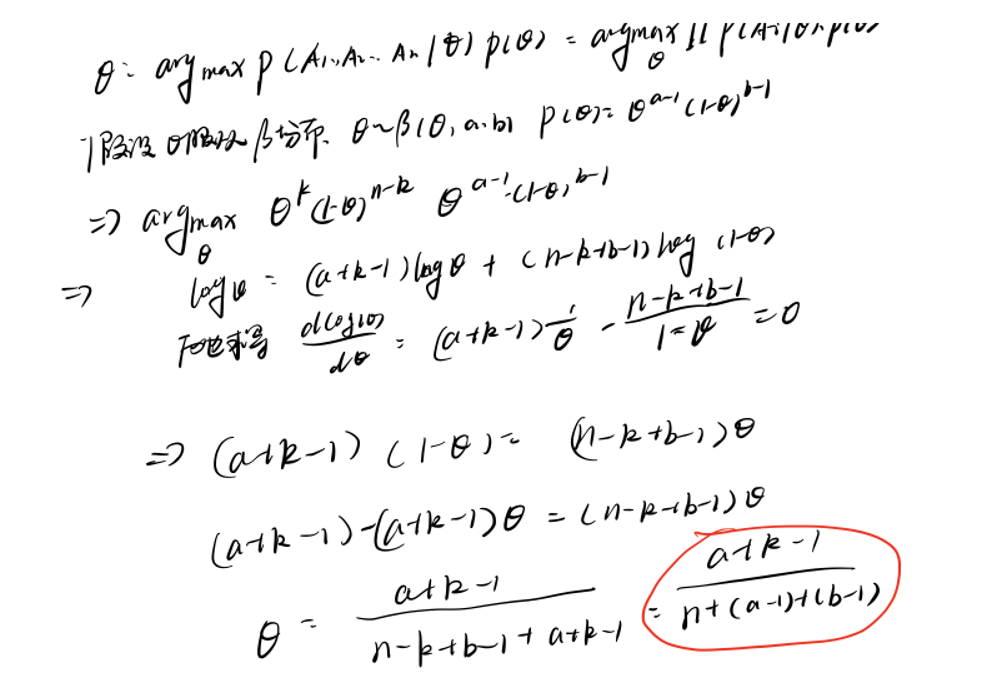 θ = argmax p(A₁, A₂... Aₙ|θ) p(θ) = argmax_θ ∏ p(Aᵢ|θ) p(θ)
假设 θ服从 β分布. θ~β(θ, a.b) p(θ)= θ^{a-1} (1-θ)^{b-1}
=> argmax_θ θ^k (1-θ)^{n-k} θ^{a-1}·(1-θ)^{b-1}
=> logθ = (a+k-1)logθ + (n-k+b-1)log(1-θ)
求导 dlog(θ)/dθ = (a+k-1)1/θ - (n-k+b-1)/(1-θ) = 0
=> (a+k-1)(1-θ) = (n-k+b-1)θ
(a+k-1)-(a+k-1)θ = (n-k+b-1)θ
θ = (a+k-1)/(n-k+b-1+a+k-1) = (a+k-1)/(n+(a-1)+(b-1))